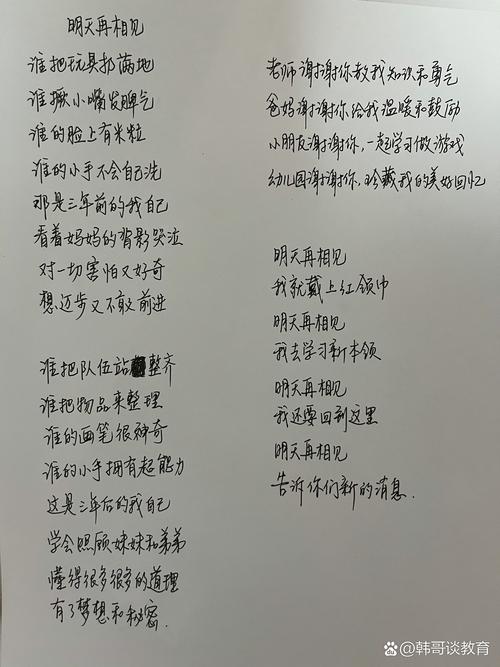 明天再相见
谁把玩具扔满地
谁撅小嘴发脾气
谁的脸上有米粒
谁的小手不会自己洗
那是三年前的我自己
看着妈妈的背影哭泣
对一切害怕又好奇
想迈步又不敢前进
谁把队伍站整齐
谁把物品来整理
谁的画笔很神奇
谁的小手拥有超能力
这是三年后的我自己
学会照顾妹妹和弟弟
懂得很多很多的道理
有了梦想和秘密.
老师谢谢你教我知识和勇气
爸妈谢谢你给我温暖和鼓励
小朋友谢谢你,一起学习做游戏
幼儿园谢谢你,珍藏我的美好回忆
明天再相见
我就戴上红领巾
明天再相见
我去学习新本领
明天再相见
我还要回到这里
明天再相见
告诉你们新的消息.
@韩哥谈教育